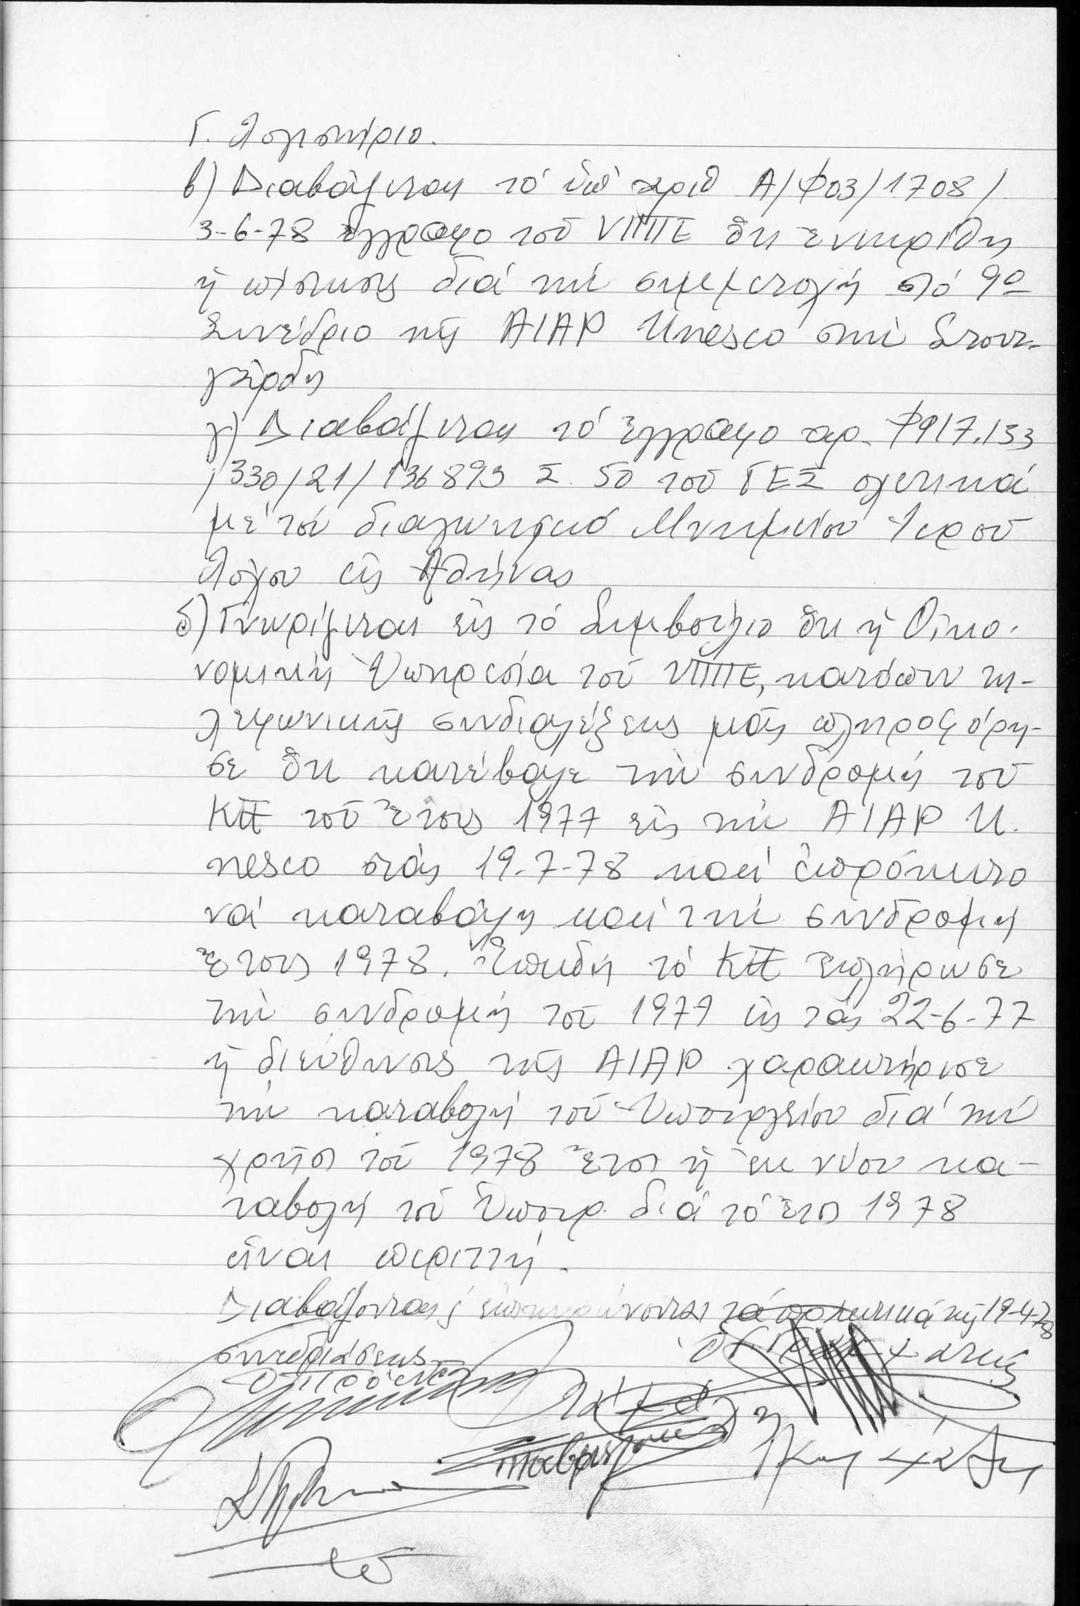 Γ. Λογιστήριο.
β) Διαβάζεται τό ὑπ' ἀριθ Α/Φ03/1708/
3-6-78 ἔγγραφο τοῦ ΥΠΠΕ ὅτι ἐνεκρίθη
ἡ πίστωσις διά τήν συμμετοχή στό 9ο
Συνέδριο τῆς AIAP Unesco στήν Στουτ-
γκάρδη
γ) Διαβάζεται τό ἔγγραφο αρ. Φ917.133
/330/21/136893 Σ. 50 τοῦ ΓΕΣ σχετικά
μέ τόν διαγωνισμό Μνημείου Ἱεροῦ
Λόχου εἰς Ἀθήνας
δ) Γνωρίζεται εἰς τό Συμβούλιο ὅτι ἡ Οἰκο-
νομική Ὑπηρεσία τοῦ ΥΠΠΕ, κατόπιν τη-
λεφωνικῆς συνδιαλέξεως μᾶς πληροφόρη-
σε ὅτι κατέβαλε τήν συνδρομή τοῦ
ΚΤΕ τοῦ ἔτους 1977 εἰς τήν AIAP U-
nesco στάς 19-7-78 καί ἐπρόκειτο
νά καταβάλη καί τήν συνδρομή
ἔτους 1978. Ἐπειδή τό ΚΤΕ ἐπλήρωσε
τήν συνδρομή τοῦ 1977 εἰς τάς 22-6-77
ἡ διεύθυνσις τῆς AIAP χαρακτήρισε
τήν καταβολή τοῦ Ὑπουργείου διά τήν
χρῆσι τοῦ 1978 ἔτσι ἡ ἐκ νέου κα-
ταβολή τοῦ Ὑπουρ. διά τό ἔτος 1978
εἶναι περιττή.
Διαβάζονται ἐπικυρώνονται τά πρακτικά τῆς 19-4-78
συνεδριάσεως